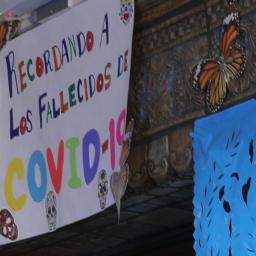 RECORDANDO A
LOS FALLECIDOS DE
COVID-19